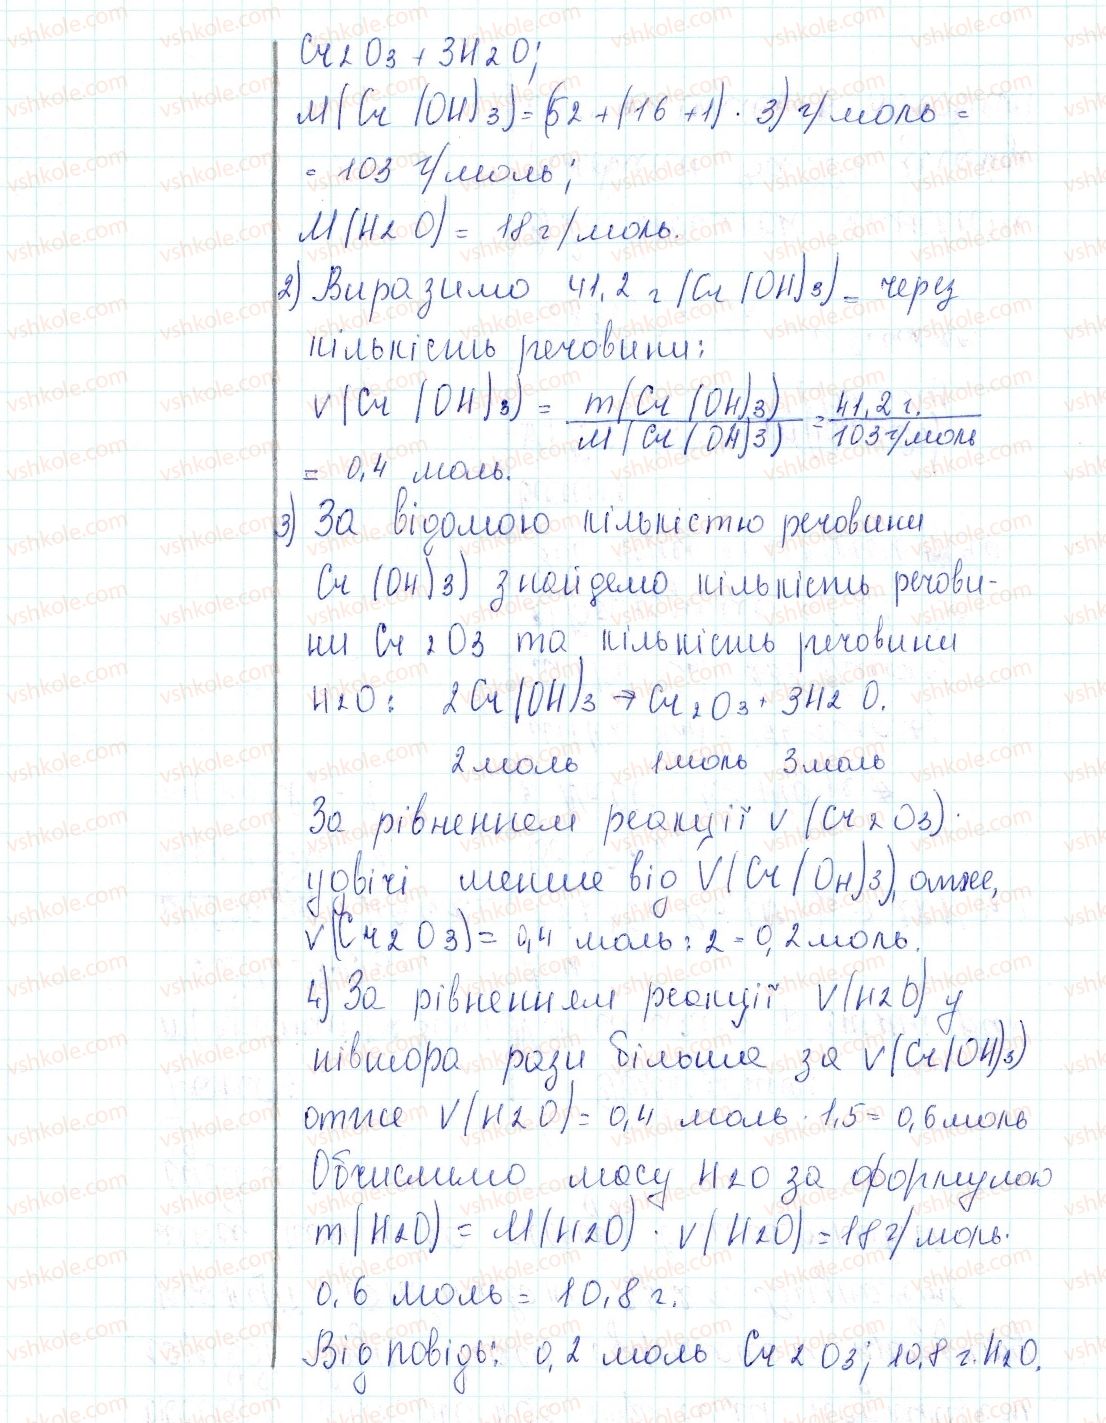 Cr2O3 + 3H2O;
M(Cr(OH)3) = (52 + (16 + 1) · 3) г/моль =
= 103 г/моль;
M(H2O) = 18 г/моль.
2) Виразимо 41,2 г (Cr(OH)3) = через
кількість речовини:
ν(Cr(OH)3) = m(Cr(OH)3) / M(Cr(OH)3) = 41,2 г. / 103 г/моль
= 0,4 моль.
3) За відомою кількістю речовини
Cr(OH)3) знайдемо кількість речови-
ни Cr2O3 та кількість речовини
H2O: 2Cr(OH)3 → Cr2O3 + 3H2O.
2 моль 1 моль 3 моль
За рівненнєм реакції ν(Cr2O3)
удвічі менше від ν(Cr(OH)3), отже,
ν(Cr2O3) = 0,4 моль : 2 = 0,2 моль.
4) За рівненням реакції ν(H2O) у
півтора рази більша за ν(Cr(OH)3)
отже ν(H2O) = 0,4 моль · 1,5 = 0,6 моль
Обчислимо масу H2O за формулою
m(H2O) = M(H2O) · ν(H2O) = 18 г/моль ·
0,6 моль = 10,8 г.
Відповідь: 0,2 моль Cr2O3; 10,8 г. H2O.